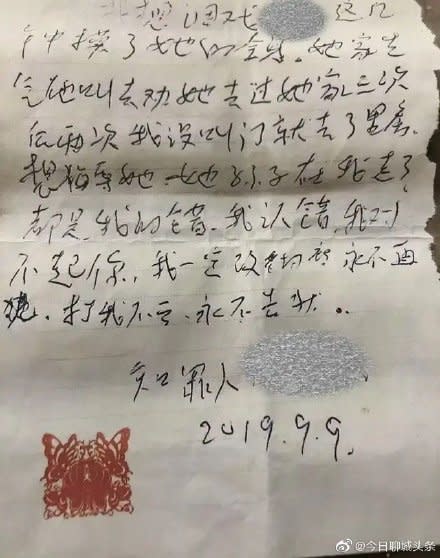 想调戏 这几
年中摸了她的全身。她家生
气他叫去劝她去过她家三次
后两次我没叫门就去了里屋.
想 她 她孙子在我走了
都是我的错.我认错,我对
不起你,我一定改 永不再
犯.打我不 、永不告状..
知罪人
2019.9.9.
@今日聊城头条